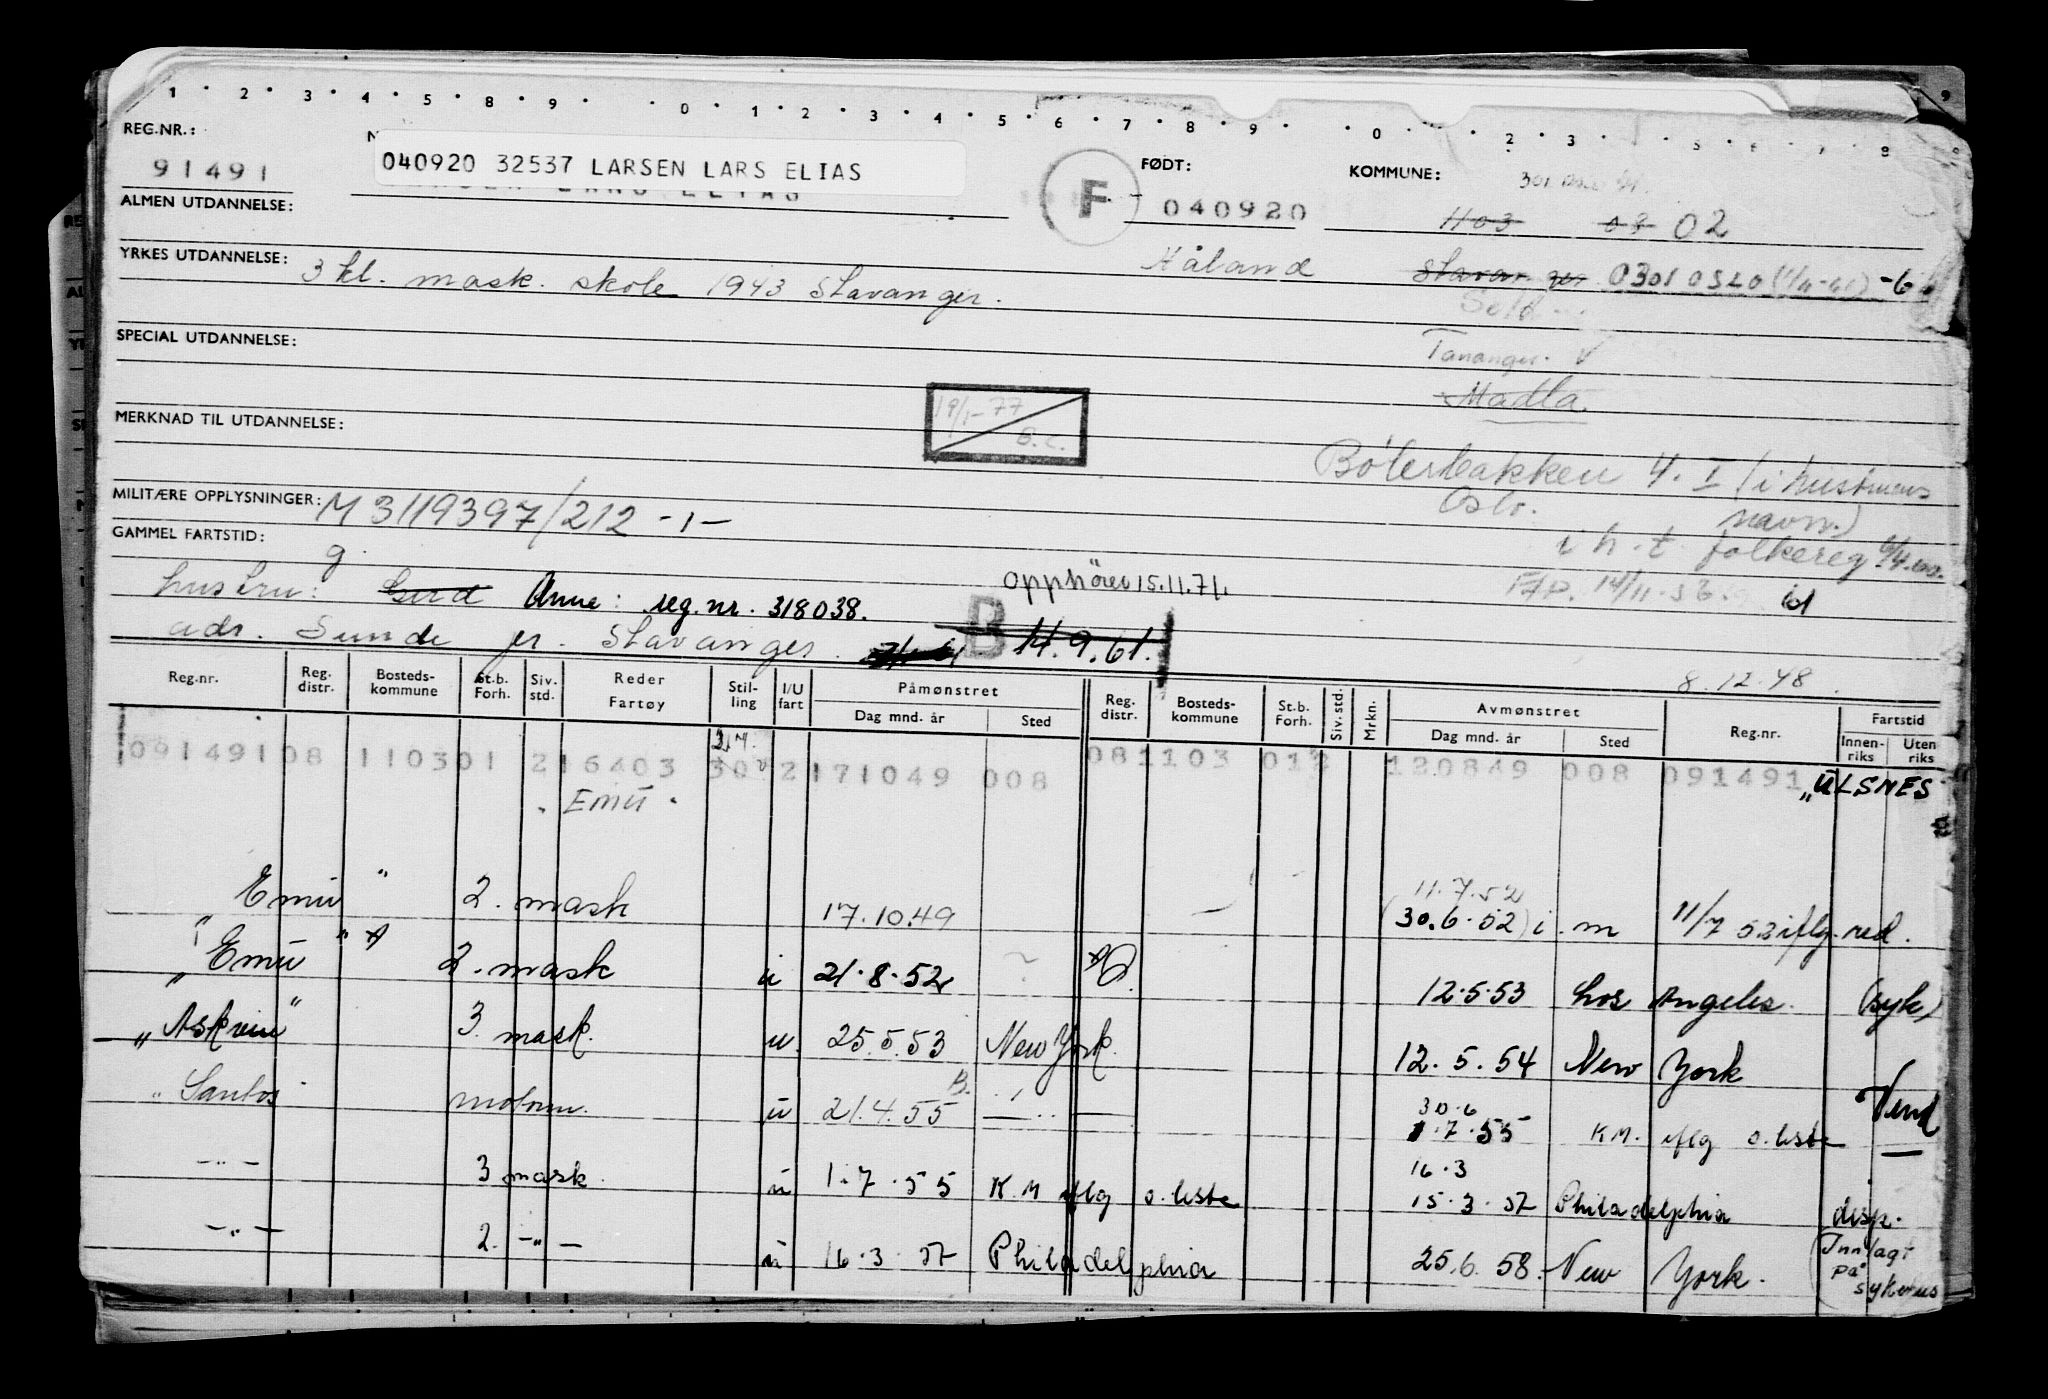 1 · 2 · 3 · 4 · 5 · 8 · 9 · 0 · 1 · 2 · 3 · 4 · 5 · 6 · 7 · 8 · 9 · 0 · 2 · 3
REG.NR.:
91491
040920 32537 LARSEN LARS ELIAS
F
FØDT:
040920
KOMMUNE:
1103 08 02
ALMEN UTDANNELSE:
YRKES UTDANNELSE: 3 kl. mask. skole 1943 Stavanger.
Håland
Stavanger 0301 OSLO
SPECIAL UTDANNELSE:
Sola
Tananger. V
Madla.
MERKNAD TIL UTDANNELSE:
19/1-77
B.C.
Bölerbakken 4. I (i hustruens
Oslo. navn.)
MILITÆRE OPPLYSNINGER: M 3119397/212 -1-
i h. t. folkereg
GAMMEL FARTSTID:
g.
F.P. 14/11-53.
hustru: Gerd Anne: reg.nr. 318038.
Opphører 15.11.71.
adr. Sunde pr. Stavanger.
B 14.9.61.
8.12.48.
Reg.nr. Reg. distr. Bosteds-kommune St.b. Forh. Siv. std. Reder Fartøy Stil-ling I/U fart Påmønstret Dag mnd. år Sted Reg. distr. Bosteds-kommune St.b. Forh. Siv. std. Mrkn. Avmønstret Dag mnd. år Sted Reg.nr. Fartstid Innen-riks Uten riks
091491 08 1103 01 2 16403 30 2 171049 008 08 1103 01 120849 008 091491 "ULSNES
2.M.
"EMU"
11.7.52
"Emu" 2. mask 17.10.49 — (30.6.52) i. m 11/7 52 iflg. red.
"Emu" 2. mask u 21.8.52 12.5.53 Los Angeles. (syk)
"Askvin" 3. mask. u. 25.5.53 New York. 12.5.54 New York
30.6
"Santos motorm. u 21.4.55 1.7.55 K M. iflg o. liste Vend
16.3
—"— 3 mask. u 1.7.55 K. M iflg o. liste 15.3.57 Philadelphia disp.
—"— 2. —"— u 16.3.57 Philadelphia 25.6.58. New York. (Innlagt
på
sykehus